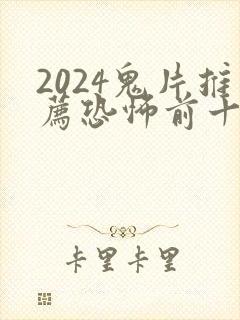 2024鬼片推
薦恐怖前十
卡里卡里